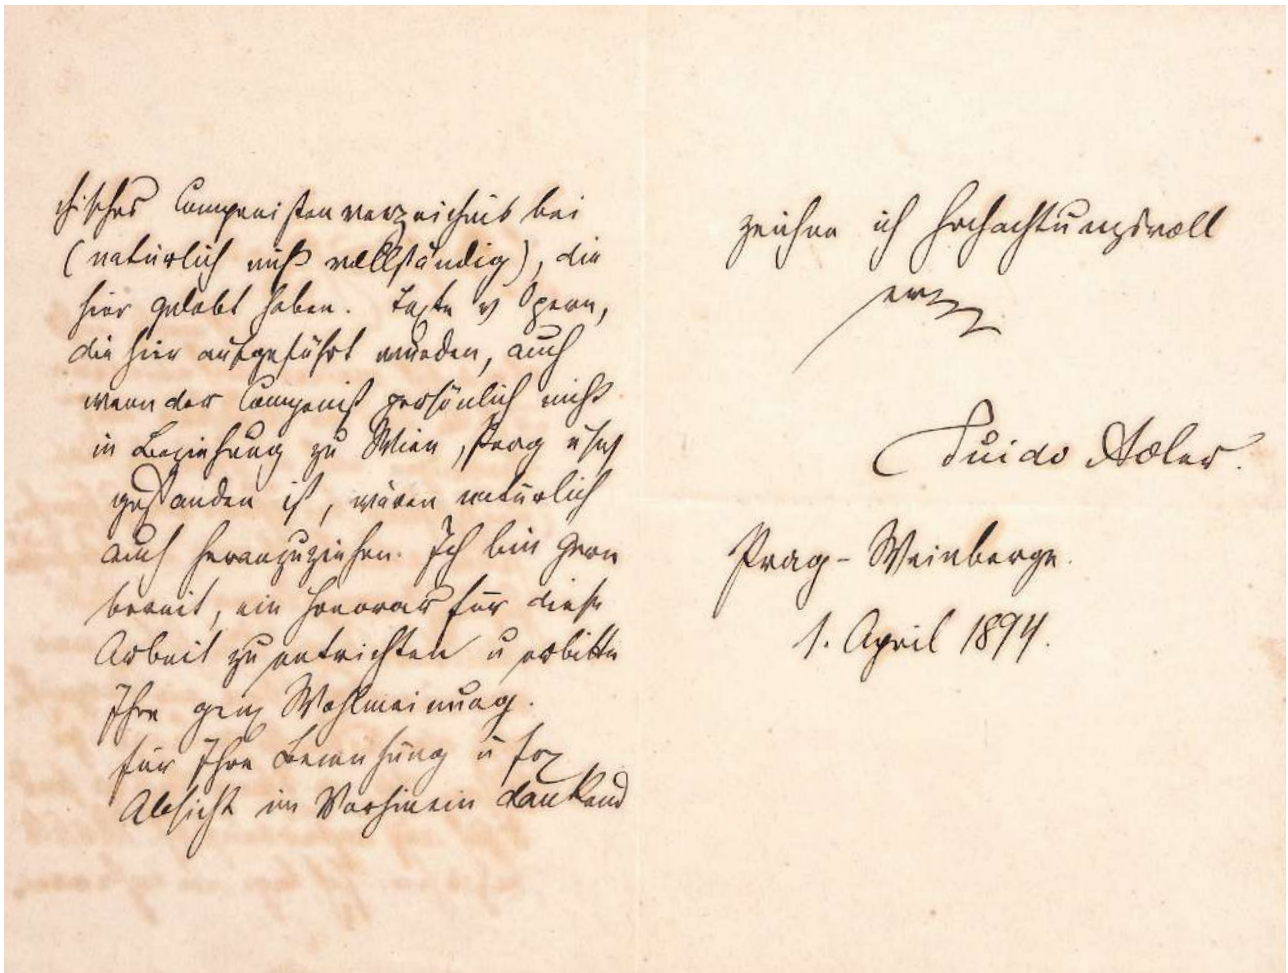 chisches Componistenverzeichnis bei
(natürlich nicht vollständig), die
hier gelebt haben. Texte v Opern,
die hier aufgeführt wurden, auch
wenn der Componist persönlich nicht
in Beziehung zu Wien, Prag usw
gestanden ist, wären natürlich
auch heranzuziehen. Ich bin gern
bereit, ein Honorar für diese
Arbeit zu entrichten u erbitte
Ihre Wohlmeinung.
Für Ihre Bemühung u
Absicht im Vorhinein dankend
zeichne ich hochachtungsvoll
Guido Adler.
Prag - Weinberge.
1. April 1894.